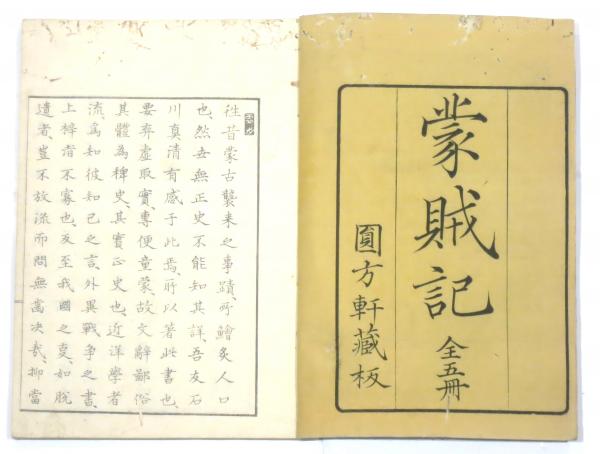 蒙賊記
全五冊
圓方軒藏板
徃昔蒙古襲来之事蹟、所鱠炙人口
也、然世無正史不能知其詳、吾友石
川真清有感于此焉、所以著此書也、
要弃虚取實、專便童蒙、故文辞鄙俗
其體為稗史、其實正史也、近洋學者
流、為知彼知己之言、外異戰争之書、
上梓者不寡也、及至我國之㕝、如脱
遺者、豈不放流而問無齒决哉、抑當